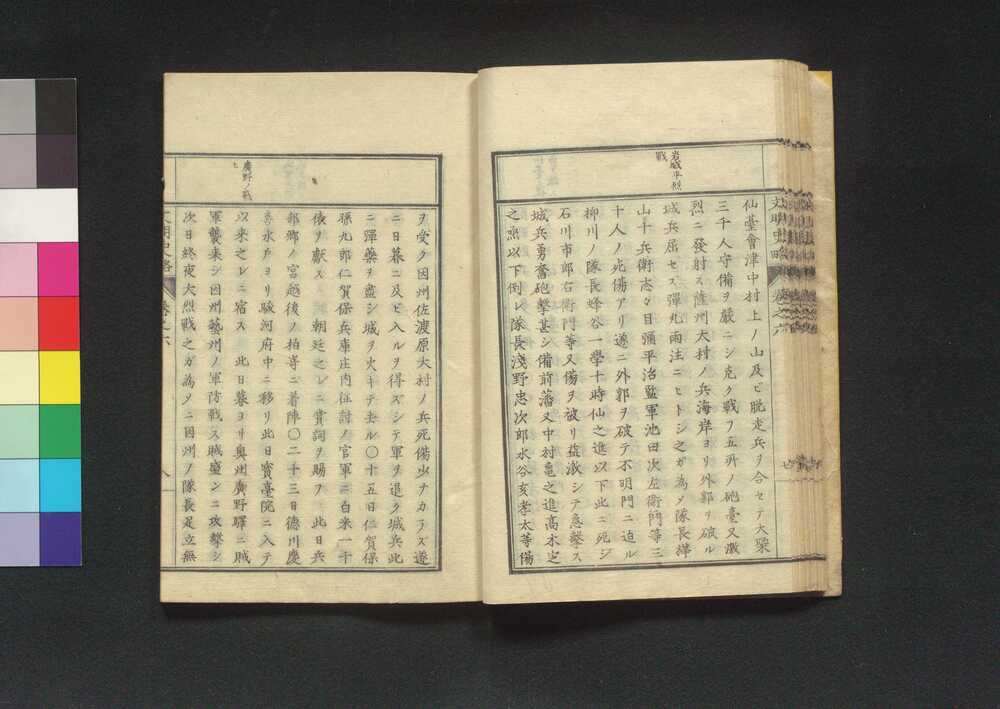 岩城平烈
戦
仙臺會津中村上ノ山及ビ脱走兵ヲ合セテ大槩
三千人守備ヲ嚴ニシ克ク戰フ五所ノ砲臺又激
烈ニ發射ス薩州大村ノ兵海岸ヨリ外郭ヲ破ル
城兵屈セス彈丸雨注ニヒトシ之ガ為メ隊長綈
山十兵衛志々目彌平治監軍池田次左衛門等三
十人ノ死傷アリ遂ニ外郭ヲ破テ不明門ニ迫ル
柳川ノ隊長蜂谷一學十時仙之進以下此ニ死シ
石川市郎右衛門等又傷ヲ被リ益激シテ急撃ス
城兵勇奮砲撃甚シ備前藩又中村亀之進高木定
之烝以下倒レ隊長淺野忠次郎水谷亥孝太等傷
ヲ受ク因州佐渡原大村ノ兵死傷少ナカラズ遂
ニ日暮ニ及ビ入ルヲ得ズシテ軍ヲ退ク城兵此
ニ彈藥ヲ盡シ城ヲ火キテ去ル〇十五日仁賀保
孫九郎仁賀保兵庫庄内征討ノ官軍ニ白米一千
俵ヲ獻ス 朝廷之レニ賞詞ヲ賜フ 此日兵
部卿ノ宮越後ノ柏崎ニ着陣〇二十三日德川慶
喜水戸ヨリ駿河府中ニ移リ此日寳臺院ニ入テ
以来之レニ宿ス 此日暮ヨリ奥州廣野驛ニ賊
軍襲来シ因州藝州ノ軍防戰ス賊盛ンニ攻撃シ
次日終夜大烈戰之ガ為メニ因州ノ隊長足立無
廣野ノ戦
ヒ
文明史略
巻之六
八